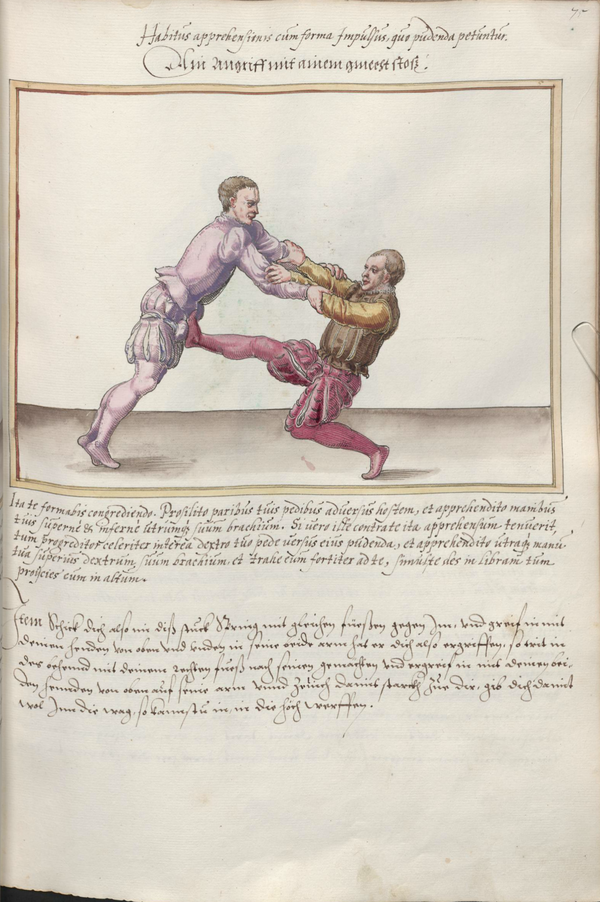 75
Habitus apprehensionis cum forma Impulsus, quo pudenda petuntur.
Ain Angriff mit ainem gmecht stoß.
Ita te formabis congrediendo. Prosilito paribus tuis pedibus adversus hostem, et apprehendito manibus
tuis superne & inferne utrumq suum brachium. Si vero ille contra te ita apprehensum tenuerit,
tum progreditor celeriter interea dextro tuo pede versus eius pudenda, et apprehendito utraq manu
tua superius dextrum suum brachium et trahe eum fortiter ad te, simulq te des in libram tum
proijcies eum in altum.
Item Schick dich also in diß stuck Spring mit gleichen fuessen gegen Im, und greif im mit
deinen henden von oben und unden in seine beide arm hat er dich also ergriffen, so trit in
des ehe mit deinem rechten fuess nach seinen gemechten und ergreif in mit deinen bei,
den henden von oben auf seine arm unnd zeuch damit starckh zue dir, gib dich damit
wol Inn die wag, so kanstu in, in die hoch werffen.